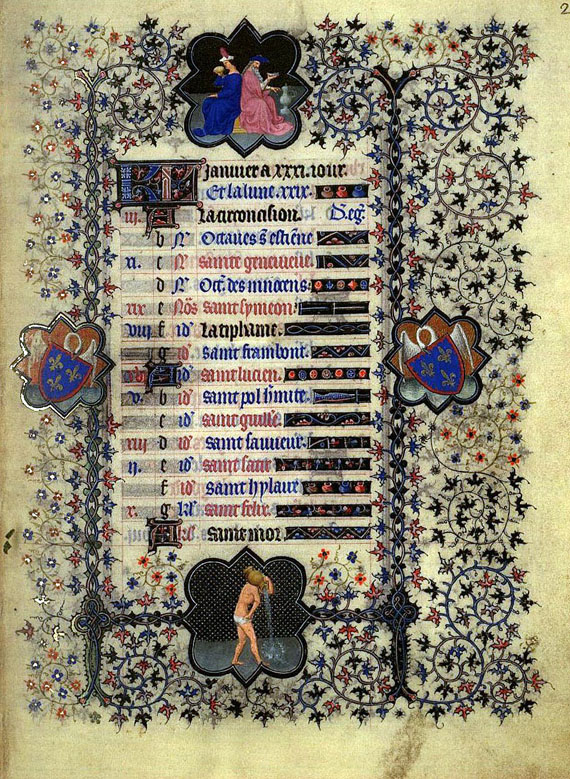 2
KL Januier a xxxi. iour.
Et la lune. xxix.
iii. A La circoncision. D. eg.
b N̄ Octaues s̄ estiene
xi. c N̄ sainte geneuieue.
d N̄ Oct̄. des innocens.
xix e Nōs saint symeon.
viii f id̄ La tiphaine.
g id̄ saint frambout.
xvi A id̄ saint lucien.
v. b id̄ saint pol h̄mite.
c id̄ saint guill̄e.
xiii d id̄ saint sauueur.
ii. e id̄ saint satir
f id̄ saint hylaire
x. g kl̄ saint felix.
A kl̄. saint mor.